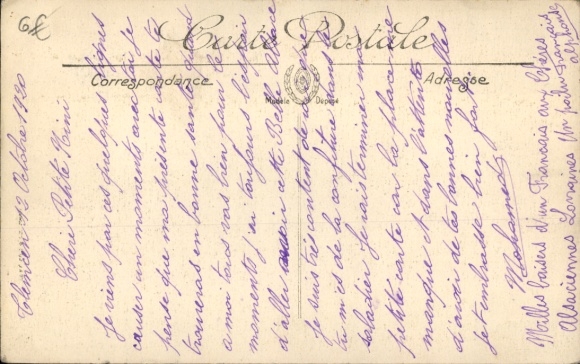 68
Carte Postale
Correspondance
Adresse
Modèle Déposé
Tlemcen 12 Octobre 1920
Cheri Petite Mimi
Je viens par ces quelques lignes
causer un moments avec toi je
pense que ma présente carte te
trouveras en bonne santé quand
a moi tous vas bien pour le
moments j'ai toujours l'espoir
d'aller voir cette Belle Alsace
Je suis très content de
tu m'es de la confiture dans le
saladier Je vais terminer ma
petite carte car la place me
manque et dans l'attente
d'avoir de tes bonnes nouvelles
Je t'embrasse bien fort
Mohamed
Milles baisers d'un Français aux Chères
Alsaciennes Lorraines Un poilu Français
Alphonse